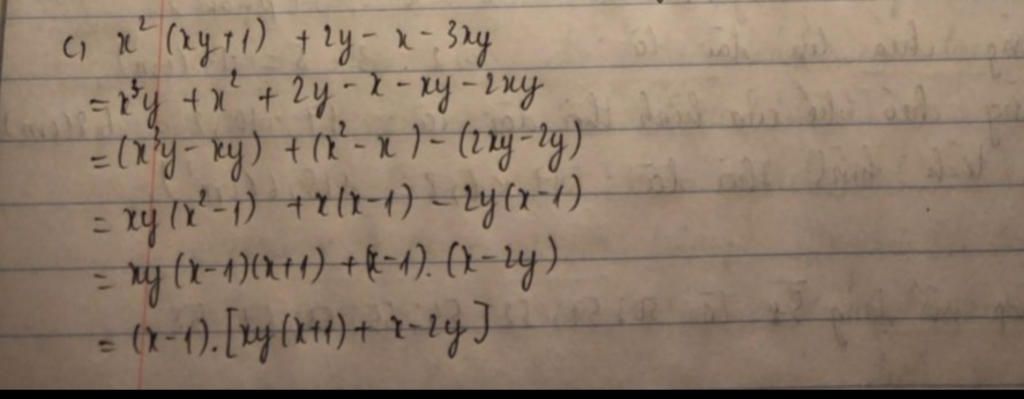 c) x² (xy+1) + 2y - x - 3xy
= x³y + x² + 2y - x - xy - 2xy
= (x³y - xy) + (x² - x) - (2xy - 2y)
= xy (x² - 1) + x(x-1) - 2y(x-1)
= xy (x-1)(x+1) + (x-1). (x-2y)
= (x-1).[xy(x+1) + x-2y]